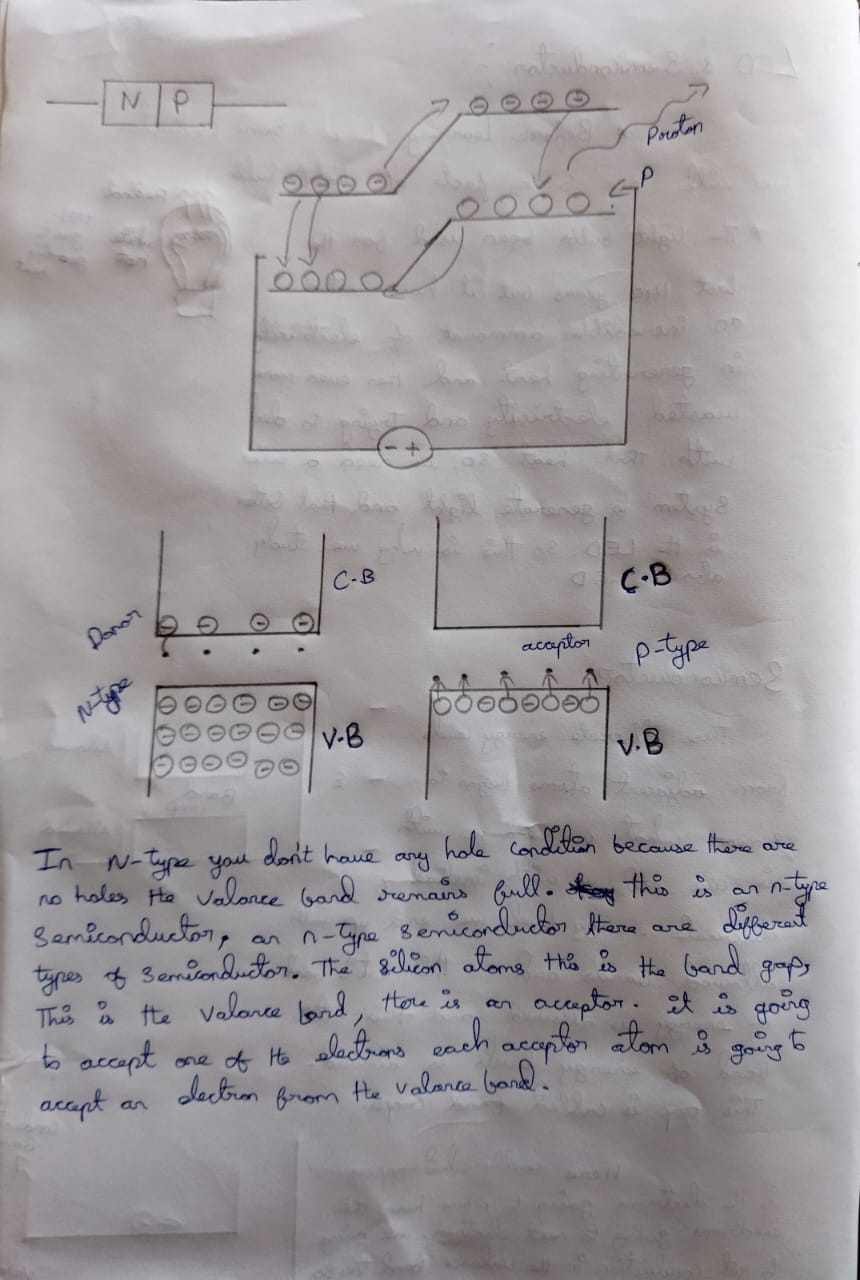 N P
Proton
P
- +
C-B
C.B
Donor
acceptor
P-type
N-type
V-B
V.B
In N-type you don't have any hole condition because there are
no holes the valance band remains full. this is an n-type
Semiconductor, an n-type semiconductor there are different
types of semiconductor. The silicon atoms this is the band gap,
This is the valance band, there is an acceptor. it is going
to accept one of the electrons each acceptor atom is going to
accept an electron from the valance band.